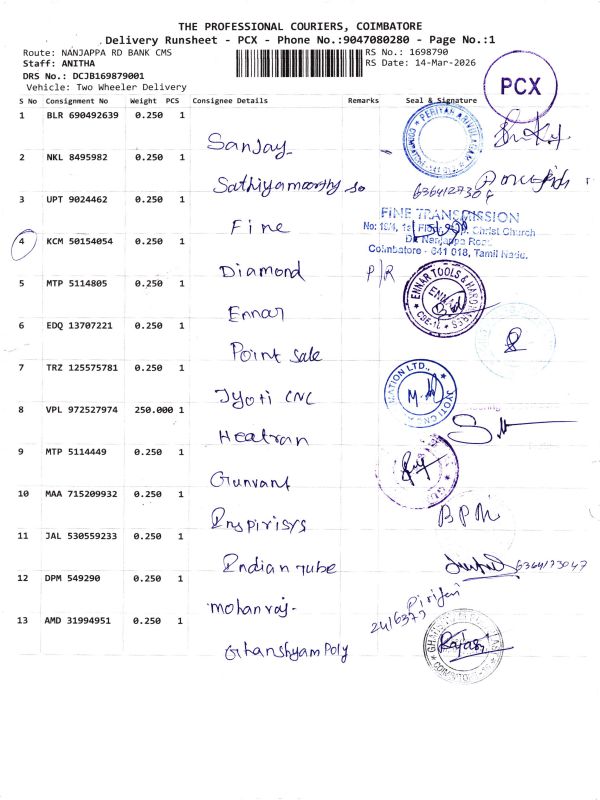 THE PROFESSIONAL COURIERS, COIMBATORE
Delivery Runsheet - PCX - Phone No.:9047080280 - Page No.:1
Route: NANJAPPA RD BANK CMS
RS No.: 1698790
Staff: ANITHA
RS Date: 14-Mar-2026
DRS No.: DCJB169879001
Vehicle: Two Wheeler Delivery
PCX
S No Consignment No Weight PCS Consignee Details Remarks Seal & Signature
1 BLR 690492639 0.250 1
Sanjay
2 NKL 8495982 0.250 1
Sathiyamoorthy
3 UPT 9024462 0.250 1
Fine
FINE TRANSMISSION
Christ Church
Dr. Nanjappa Road
Coimbatore - 641 018, Tamil Nadu.
4 KCM 50154054 0.250 1
Diamond P/R
5 MTP 5114805 0.250 1
Ennar
ENNAR TOOLS &
6 EDQ 13707221 0.250 1
Point Sale
7 TRZ 125575781 0.250 1
Jyoti CNC
8 VPL 972527974 250.000 1
Heatran
9 MTP 5114449 0.250 1
Gunvant
10 MAA 715209932 0.250 1
Inspirisys
11 JAL 530559233 0.250 1
Indian tube
12 DPM 549290 0.250 1
mohanraj
13 AMD 31994951 0.250 1
Ghanshyam Poly